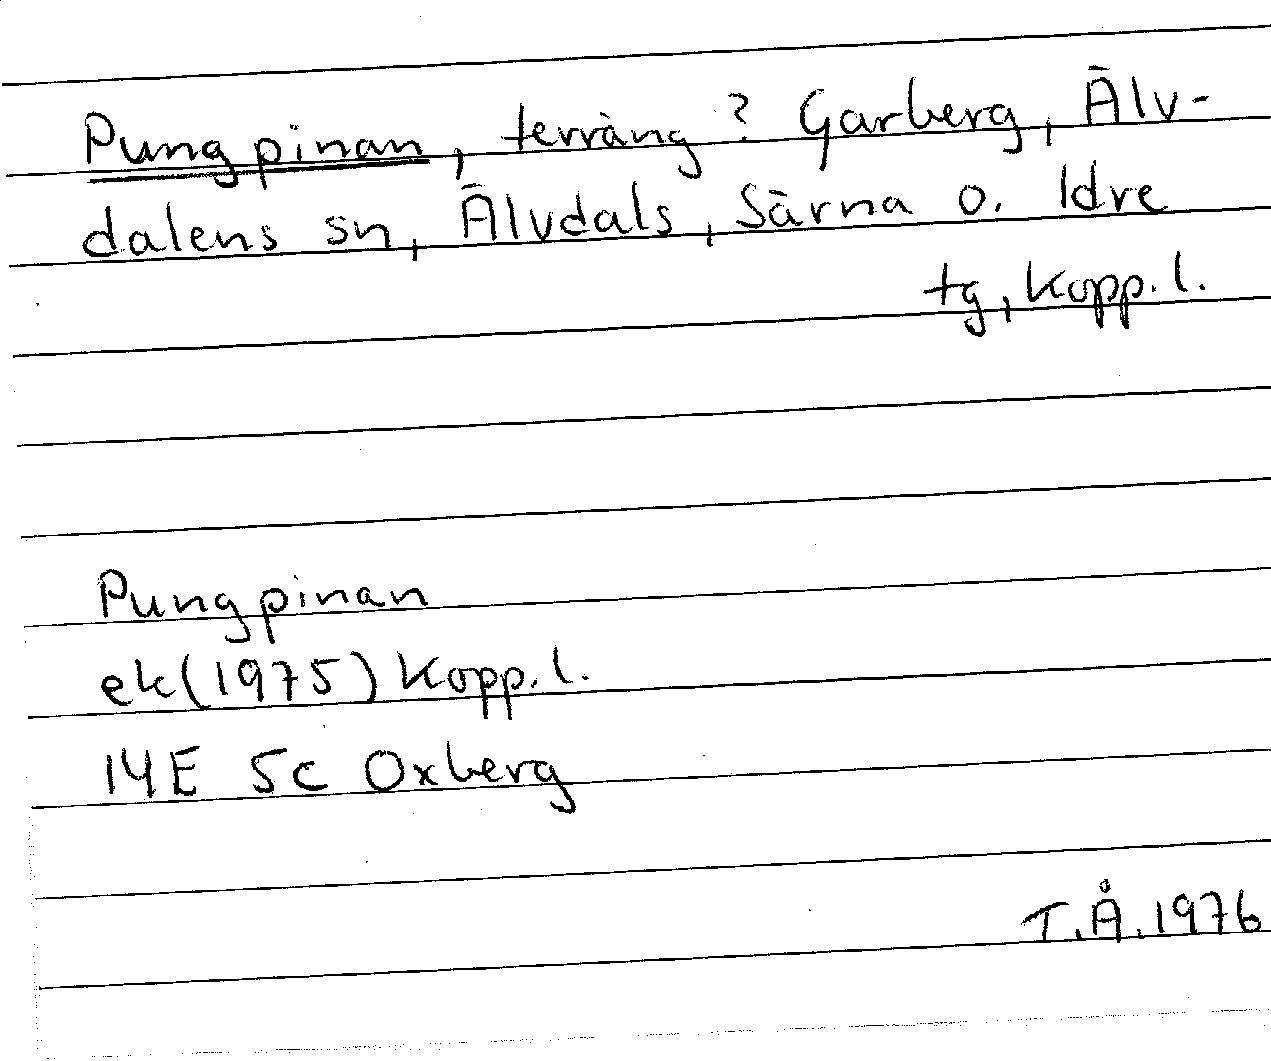 Pungpinan, terräng? Garberg, Älv-
dalens sn, Älvdals, Särna o. Idre
tg, Kopp.l.
Pungpinan
ek(1975) Kopp.l.
14E 5c Oxberg
T.Å.1976